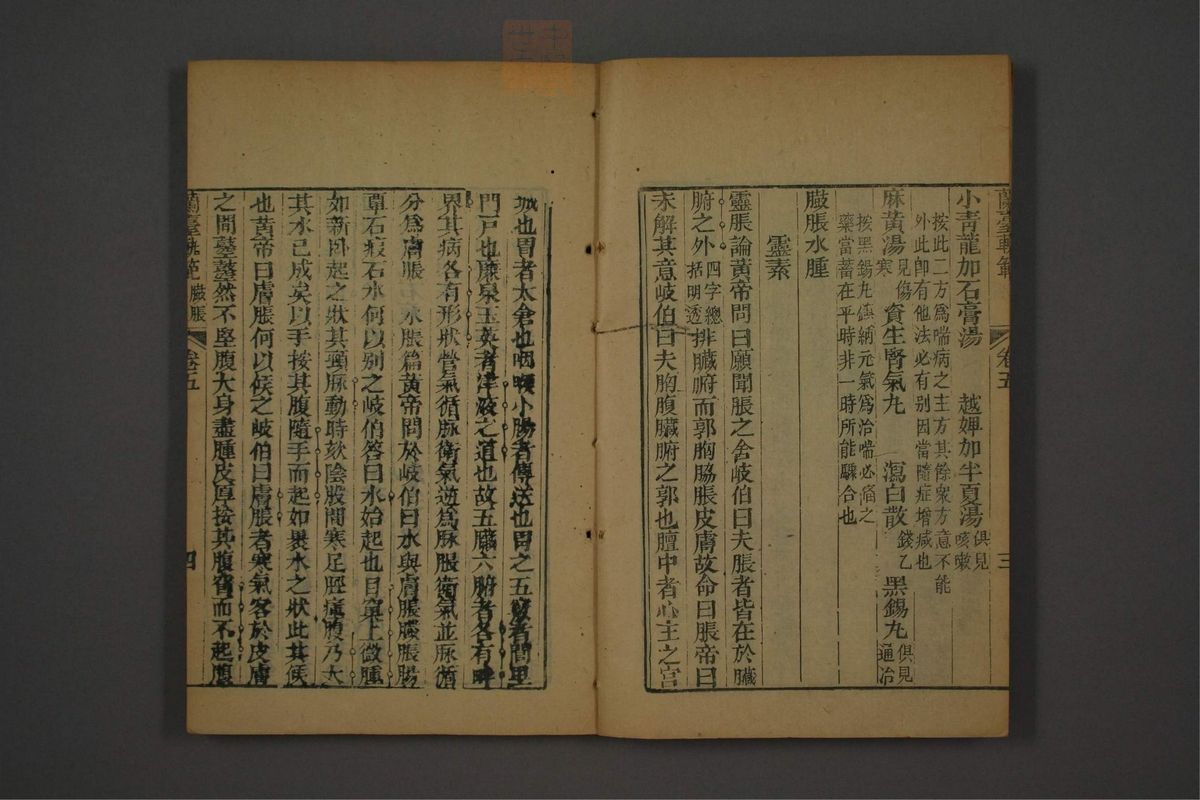 蘭臺軌範 卷五 三
小青龍加石膏湯 越婢加半夏湯俱見咳嗽
按此二方為喘病之主方其餘衆方意不能
外此卽有他法必有別因當隨症增減也
麻黃湯見傷寒 資生腎氣丸 瀉白散錢乙 黑錫丸俱見通治
按黑錫丸鎮納元氣為治喘必備之
藥當蓄在平時非一時所能驟合也
臌脹水腫
靈素
靈脹論黃帝問曰願聞脹之舍岐伯曰夫脹者皆在於臟
腑之外四字總括明透排臟腑而郭胸脇脹皮膚故命曰脹帝曰
未解其意岐伯曰夫胸腹臟腑之郭也膻中者心主之宮
城也胃者太倉也咽喉小腸者傳送也胃之五竅者閭里
門戶也廉泉玉英者津液之道也故五臟六腑者各有畔
界其病各有形狀營氣循脉衛氣逆為脉脹衛氣並脉循
分為膚脹 水脹篇黃帝問於岐伯曰水與膚脹臌脹腸
覃石瘕石水何以別之岐伯答曰水始起也目窠上微腫
如新卧起之狀其頸脉動時欬陰股間寒足脛瘇腹乃大
其水已成矣以手按其腹隨手而起如裹水之狀此其候
也黃帝曰膚脹何以候之岐伯曰膚脹者寒氣客於皮膚
之間鼟鼟然不堅腹大身盡腫皮厚按其腹窅而不起腹
蘭臺軌範 臌脹 卷五 四